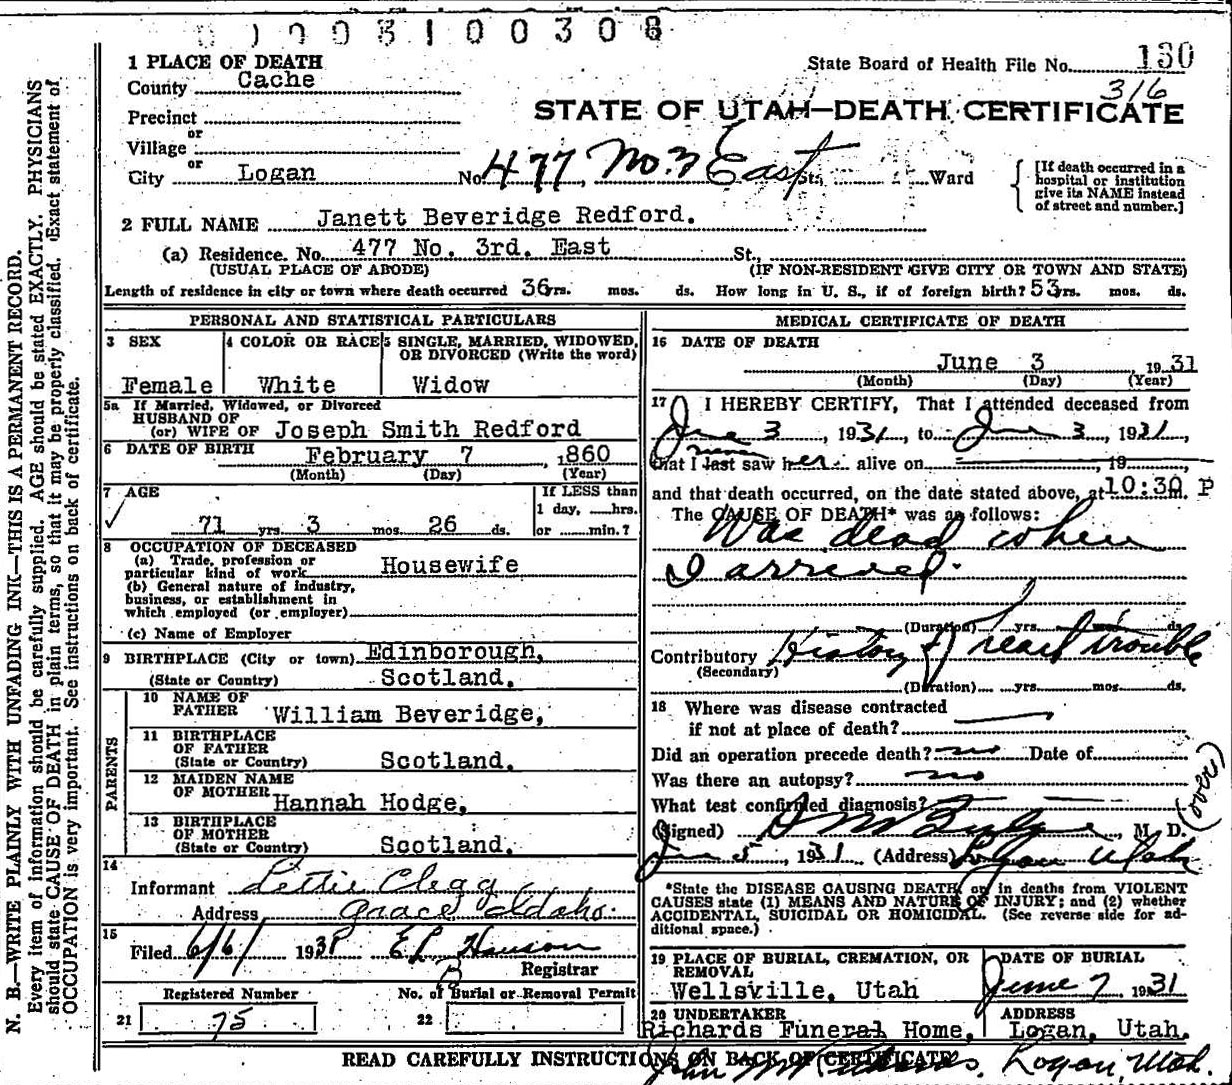 0 0 0 3 1 0 0 3 0 8
1 PLACE OF DEATH
County Cache
State Board of Health File No. 130
316
STATE OF UTAH—DEATH CERTIFICATE
Precinct
or
Village
or
City Logan No. 477 No. 3 East St. Ward
[If death occurred in a
hospital or institution
give its NAME instead
of street and number.]
2 FULL NAME Janett Beveridge Redford.
(a) Residence. No. 477 No. 3rd. East St.,
(USUAL PLACE OF ABODE) (IF NON-RESIDENT GIVE CITY OR TOWN AND STATE)
Length of residence in city or town where death occurred 36 yrs. mos. ds. How long in U. S., if of foreign birth? 53 yrs. mos. ds.
PERSONAL AND STATISTICAL PARTICULARS
3 SEX 4 COLOR OR RACE 5 SINGLE, MARRIED, WIDOWED,
OR DIVORCED (Write the word)
Female White Widow
5a If Married, Widowed, or Divorced
HUSBAND OF
(or) WIFE OF Joseph Smith Redford
6 DATE OF BIRTH February 7, 1860
(Month) (Day) (Year)
7 AGE If LESS than
1 day, ....hrs.
71 yrs. 3 mos. 26 ds. or ....min.?
8 OCCUPATION OF DECEASED
(a) Trade, profession or
particular kind of work Housewife
(b) General nature of industry,
business, or establishment in
which employed (or employer)
(c) Name of Employer
9 BIRTHPLACE (City or town) Edinborough,
(State or Country) Scotland.
PARENTS
10 NAME OF
FATHER William Beveridge,
11 BIRTHPLACE
OF FATHER
(State or Country) Scotland.
12 MAIDEN NAME
OF MOTHER Hannah Hodge,
13 BIRTHPLACE
OF MOTHER
(State or Country) Scotland.
14
Informant Lettie Clegg
Address Grace Idaho.
15
Filed 6/6/ 193 E L Hanson
Registrar
Registered Number No. of Burial or Removal Permit
21 75 22
MEDICAL CERTIFICATE OF DEATH
16 DATE OF DEATH
June 3 1931
(Month) (Day) (Year)
17 I HEREBY CERTIFY, That I attended deceased from
June 3, 1931, to June 3, 1931,
never
that I last saw her alive on , 19
and that death occurred, on the date stated above, at 10:30 P m.
The CAUSE OF DEATH* was as follows:
Was dead when
I arrived.
(Duration) yrs. mos. ds.
Contributory History of heart trouble
(Secondary)
(Duration) yrs. mos. ds.
18 Where was disease contracted
if not at place of death?
Did an operation precede death? no Date of
Was there an autopsy? no
What test confirmed diagnosis?
(over)
(Signed) M. D.
June 5, 1931 (Address) Logan Utah
*State the DISEASE CAUSING DEATH, or in deaths from VIOLENT
CAUSES state (1) MEANS AND NATURE OF INJURY; and (2) whether
ACCIDENTAL, SUICIDAL OR HOMICIDAL. (See reverse side for ad-
ditional space.)
19 PLACE OF BURIAL, CREMATION, OR
REMOVAL
Wellsville, Utah
DATE OF BURIAL
June 7 1931
20 UNDERTAKER ADDRESS
Richards Funeral Home, Logan, Utah.
READ CAREFULLY INSTRUCTIONS ON BACK OF CERTIFICATE
John Richards. Logan, Utah.
N. B.—WRITE PLAINLY WITH UNFADING INK—THIS IS A PERMANENT RECORD.
Every item of information should be carefully supplied. AGE should be stated EXACTLY. PHYSICIANS
should state CAUSE OF DEATH in plain terms, so that it may be properly classified. Exact statement of
OCCUPATION is very important. See instructions on back of certificate.